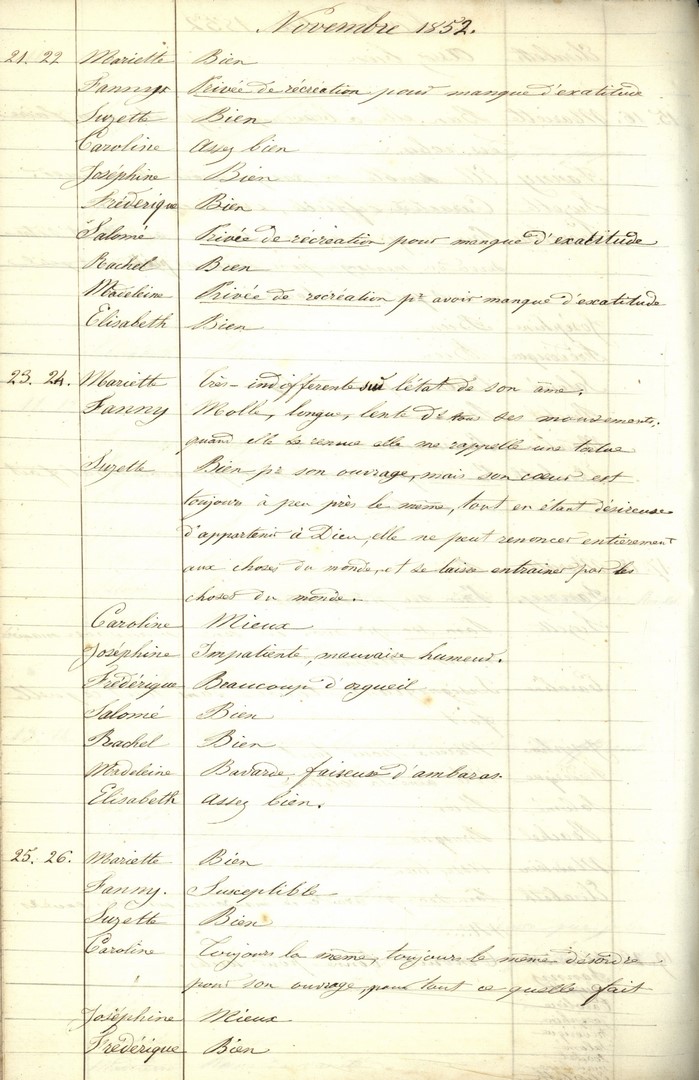 Novembre 1852.
21. 22 Mariette Bien
Fanny Privée de récréation pour manque d'exatitude
Suzette Bien
Caroline Assez bien
Joséphine Bien
Frédérique Bien
Salomé Privée de récréation pour manque d'exatitude
Rachel Bien
Madeleine Privée de recréation pr avoir manque d'exatitude
Elisabeth Bien
23. 24. Mariette Très-indifferente sur l'état de son âme.
Fanny Molle, longue, lente ds tous ses mouvements.
quand elle se remue elle me rappelle une tortue
Suzette Bien pr son ouvrage, mais son cœur est
toujours à peu près le même, tout en étant désireuse
d'appartenir à Dieu, elle ne peut renoncer entièrement
aux choses du monde, et se laisse entrainer par les
choses du monde.
Caroline Mieux
Joséphine Impatiente, mauvaise humeur.
Frédérique Beaucoup d'orgueil
Salomé Bien
Rachel Bien
Madeleine Bavarde, faiseuse d'ambaras.
Elisabeth Assez bien.
25. 26. Mariette Bien
Fanny. Susceptible
Suzette Bien
Caroline Toujours la même, toujours le même désordre
pour son ouvrage, pour tout ce quelle fait
Joséphine Mieux
Frédérique Bien